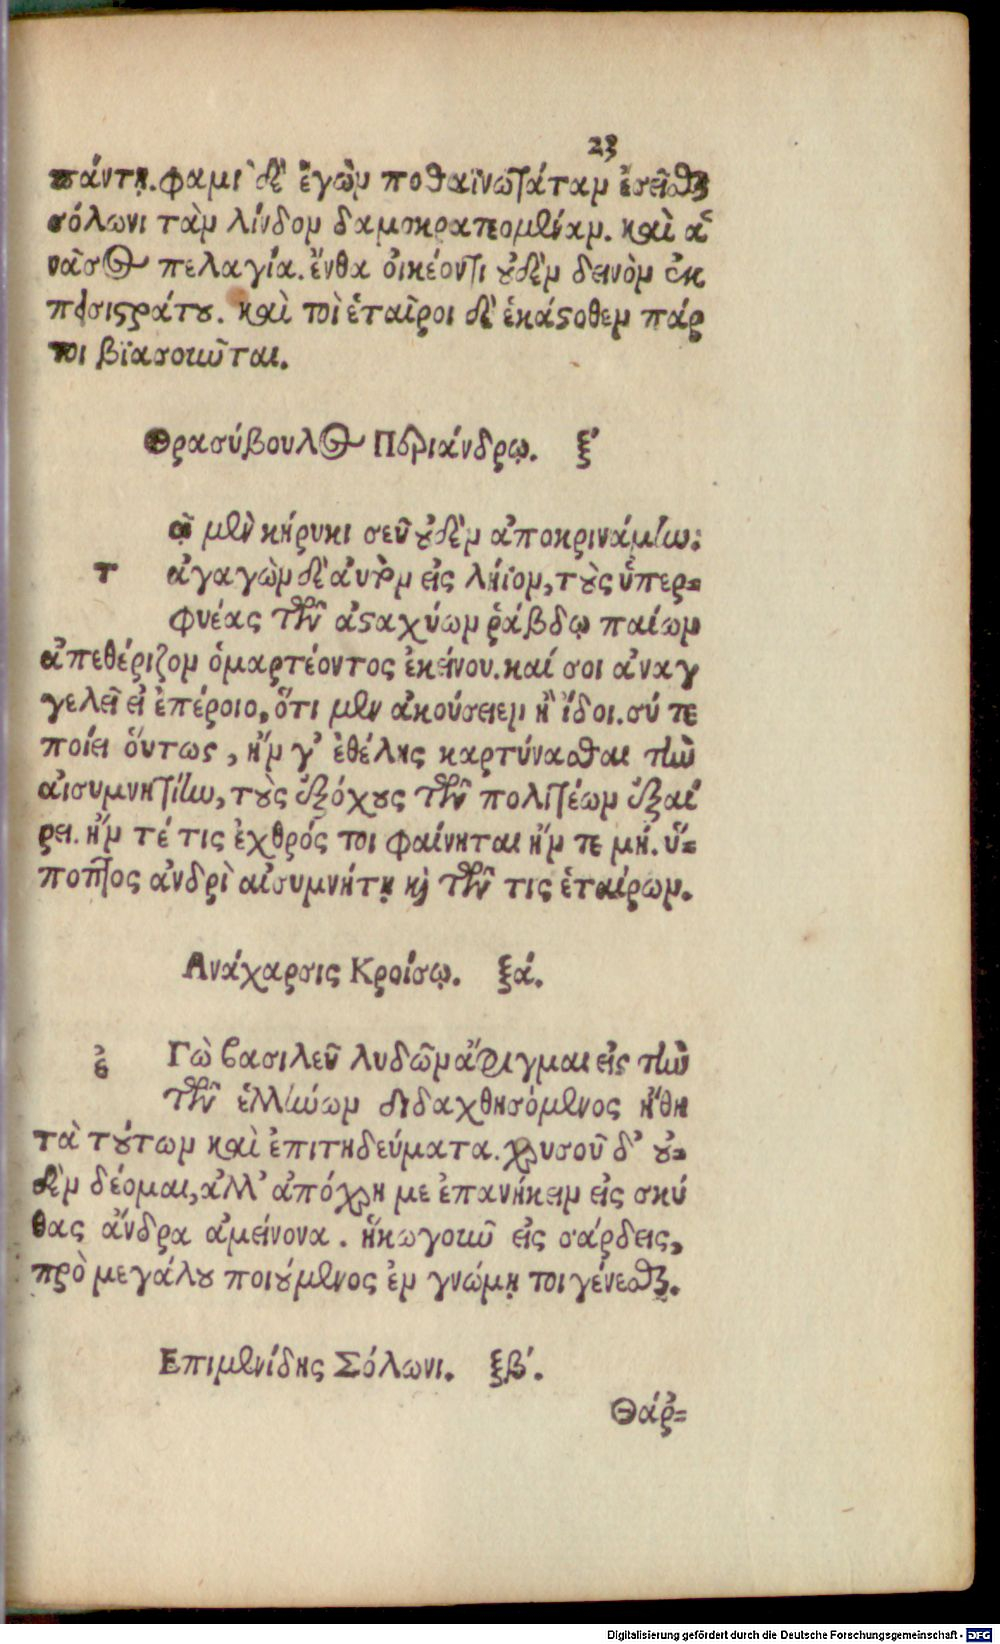 23
πάντη. φαμὶ δὲ ἐγὼν ποθαϊνωτάταν ἐσεῖσθαι
σόλωνι τὰν λίνδον δαμοκρατεομέναν. καὶ ἁ
νᾶσος πελαγία. ἔνθα οἰκέοντι οὐδὲν δεινὸν ἐκ
πεισιστράτου. καὶ τοὶ ἑταῖροι δὲ ἑκάστοθεν πάρ
τοι βϊασοιῶται.
Θρασύβουλος Περιάνδρῳ. ξ´
ῷ μὲν κήρυκι σεῦ οὐδὲν ἀποκρινάμην:
τ ἀγαγὼν δὲ αὐτὸν εἰς λήϊον, τοὺς ὑπερ-
φυέας τῶν ἀσταχύων ῥάβδῳ παίων
ἀπεθέριζον ὁμαρτέοντος ἐκείνου. καί σοι ἀναγ
γελεῖ εἰ ἐπέροιο, ὅτι μεν ἀκούσειεν ἢ ἴδοι. σύ τε
ποίει οὕτως, ἤν γ' ἐθέλης καρτύνασθαι τὴν
αἰσυμνητίην, τοὺς ἐξόχους τῶν πολιτέων ἐξαί
ρει. ἤν τέ τις ἐχθρός τοι φαίνηται ἤν τε μή. ὕ-
ποπτος ἀνδρὶ αἰσυμνήτῃ καὶ τῶν τις ἑταίρων.
Ανάχαρσις Κροίσῳ. ξά.
ἐ Γὼ βασιλεῦ λυδῶν ἀφῖγμαι εἰς τὴν
τῶν ἑλλήνων διδαχθησόμενος ἤθη
τὰ τούτων καὶ ἐπιτηδεύματα. χρυσοῦ δ' οὐ-
δὲν δέομαι, ἀλλ' ἀπόχρη με ἐπανήκειν εἰς σκύ
θας ἄνδρα ἀμείνονα. ἥκωγοιῶ εἰς σάρδεις,
πρὸ μεγάλου ποιούμενος ἐν γνώμῃ τοι γένεσθαι.
Επιμενίδης Σόλωνι. ξβ´.
Θάρ-
Digitalisierung gefördert durch die Deutsche Forschungsgemeinschaft - DFG